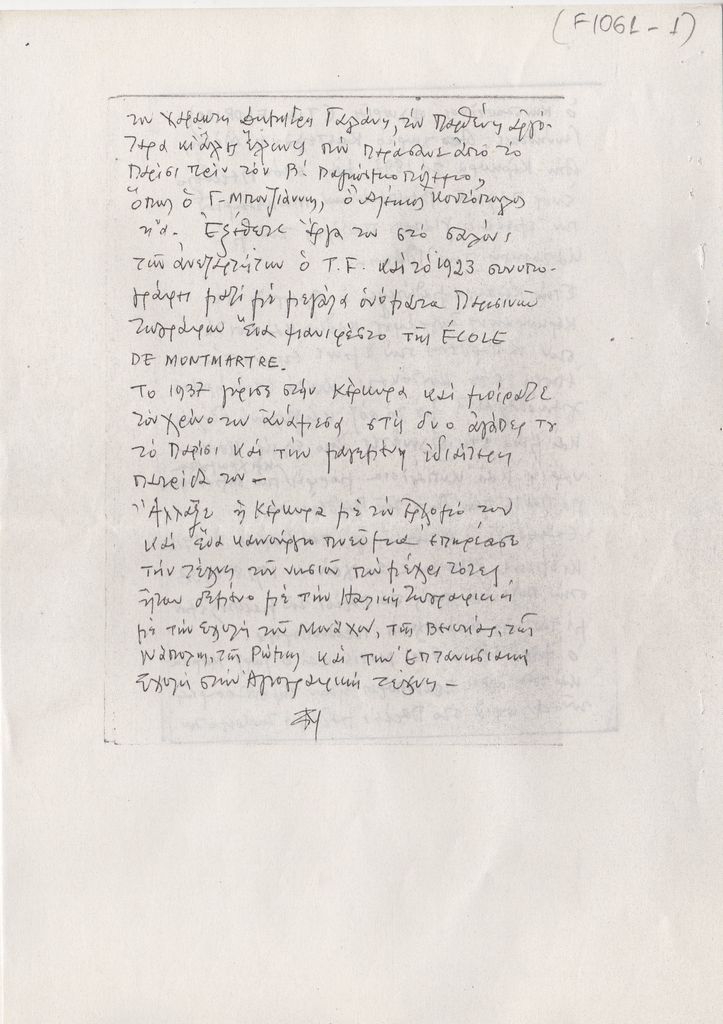 (F1061-1)
τον χαράκτη Δημήτρη Γαλάνη, τον Παρθένη αργό-
τερα κι άλλους Έλληνες που πέρασαν από το
Παρίσι πριν τον Β! Παγκόσμιο πόλεμο,
όπως ὁ Γ. Μπουζιάνης, ὁ Αλέκος Κοντόπουλος
κ.α. Ἐξέθεσε ἔργα του στό σαλόνι
τῶν ἀνεξαρτήτων ὁ Τ.Γ. καί τό 1923 συνυπο-
γράφει μαζί μέ μεγάλα ὀνόματα Παρισινῶν
ζωγράφων ἕνα μανιφέστο τῆς ÉCOLE
DE MONTMARTRE.
Το 1937 γύρισε στήν Κέρκυρα καί μοίραζε
τόν χρόνο του ἀνάμεσα στίς δυο ἀγάπες του
τό Παρίσι καί τήν μαγεμένη ἰδιαίτερη
πατρίδα του —
Ἄλλαξε ἡ Κέρκυρα μέ τόν ἐρχομό του
καί ἕνα καινούργιο πνεῦμα ἐπηρέασε
τήν τέχνη τοῦ νησιοῦ πού μέχρι τότες
ἦταν δεμένο μέ τήν Ιταλική ζωγραφική
μέ τήν σχολή τοῦ Μονάχου, τῆς Βενετίας, τῆς
Νάπολης, τῆς Ρώμης καί τήν Ἑπτανησιακή
σχολή στήν Ἁγιογραφική τέχνη —